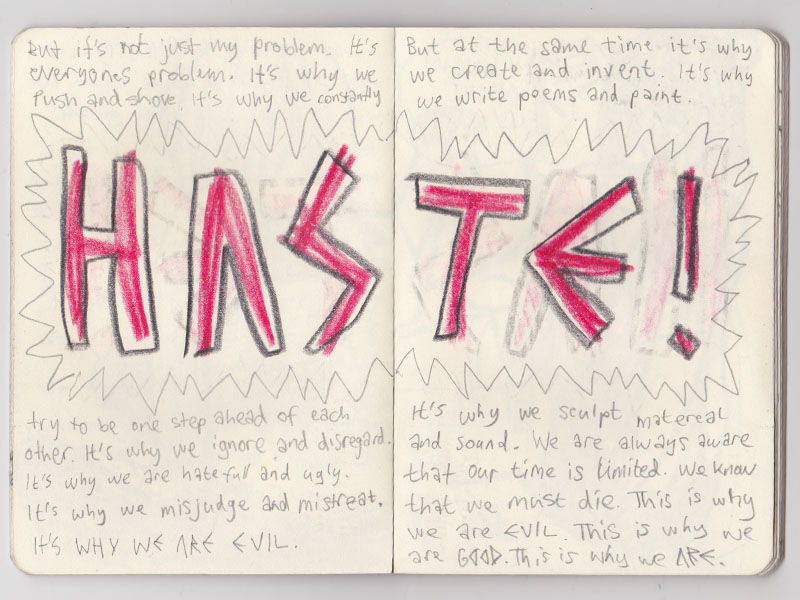 But it's not just my problem. It's
everyones problem. It's why we
Push and shove. It's why we constantly
HASTE!
try to be one step ahead of each
other. It's why we ignore and disregard.
It's why we are hatefull and ugly.
It's why we misjudge and mistreat.
It's WHY WE ARE EVIL.
But at the same time it's why
we create and invent. It's why
we write poems and paint.
It's why we sculpt matereal
and sound. We are always aware
that our time is limited. We know
that we must die. This is why
we are EVIL. This is why we
are GOOD. This is why we ARE.